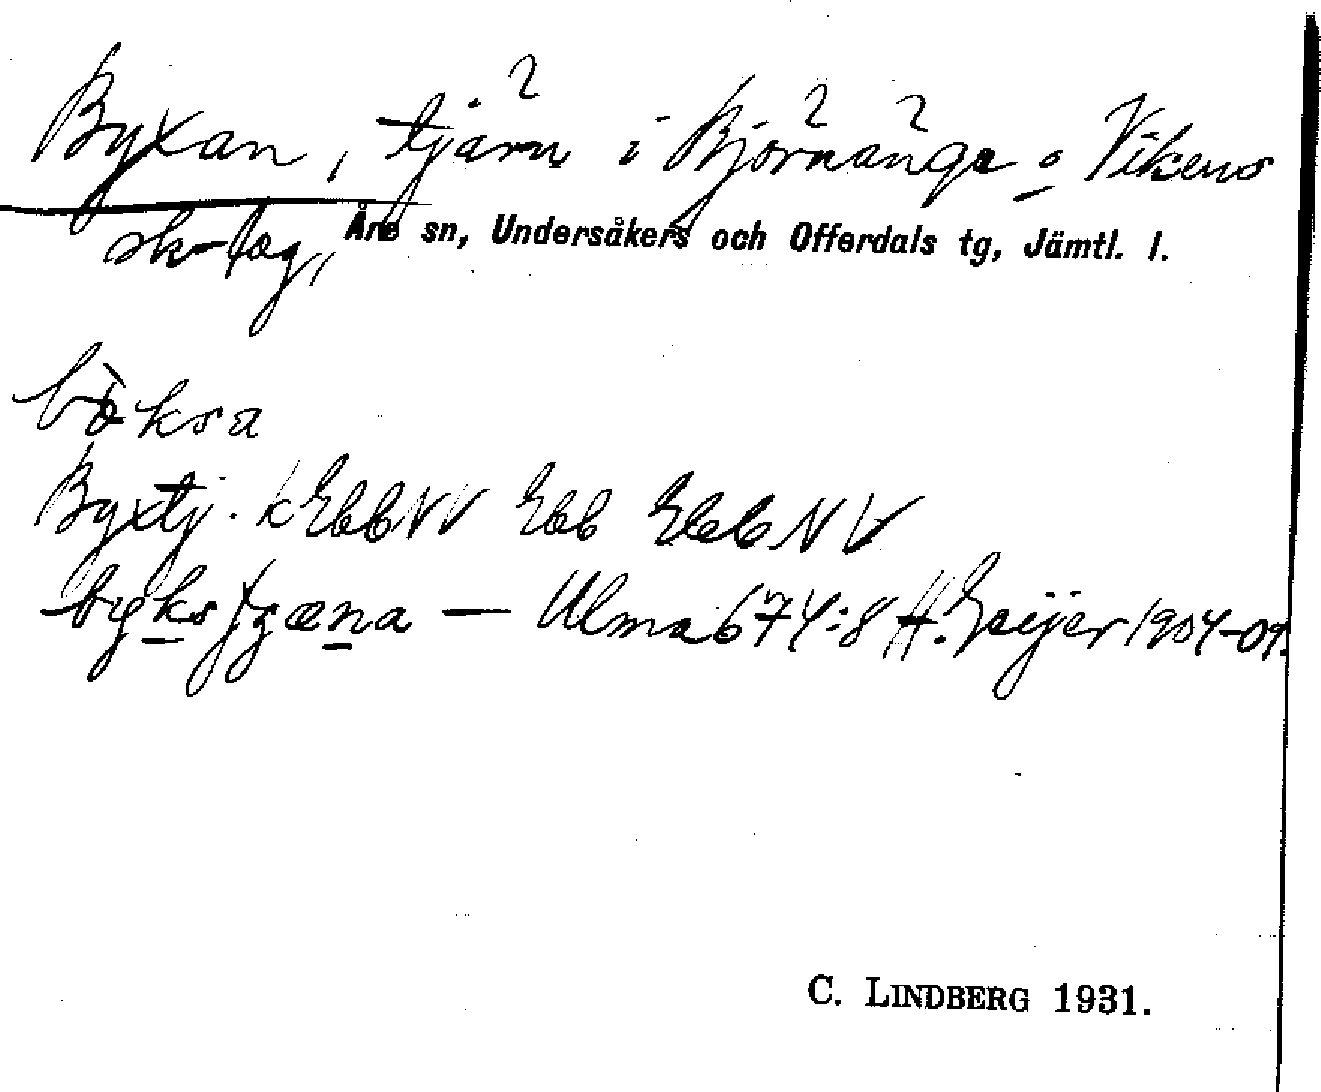 Byxan, tjärn i Björnänge o Vikens
sk-lag, Åre sn, Undersåkers och Offerdals tg, Jämtl. l.
bòksa
Byxtj. k EbbNV Ebb EbbNV
— Ulma 674:8 H. Geijer 1904-09.
C. LINDBERG 1931.